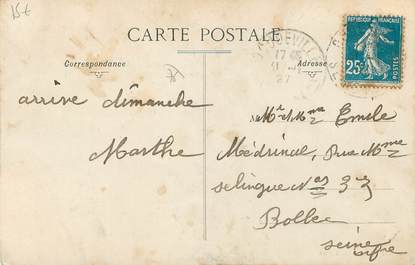 15 €
CARTE POSTALE
Correspondance
Adresse
25c
POSTES
arrive dimanche
Marthe
Mr et Mme Emile
Médrinal, Rue Mme
selingue Nos 33
Bolbec
Seine
infre